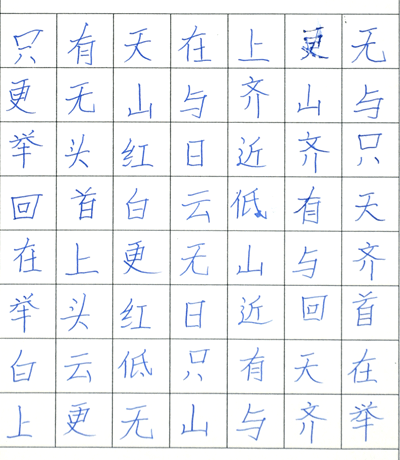 只有天在上更无
更无山与齐山与
举头红日近齐只
回首白云低有天
在上更无山与齐
举头红日近回首
白云低只有天在
上更无山与齐举